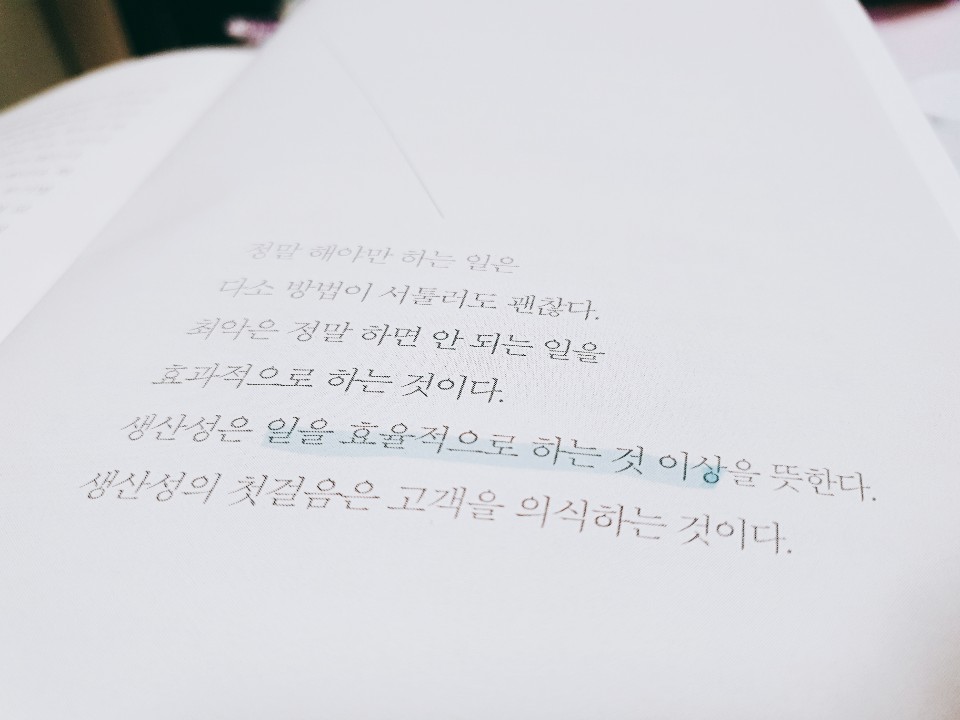 정말 해야만 하는 일은
다소 방법이 서툴러도 괜찮다.
최악은 정말 하면 안 되는 일을
효과적으로 하는 것이다.
생산성은 일을 효율적으로 하는 것 이상을 뜻한다.
생산성의 첫걸음은 고객을 의식하는 것이다.